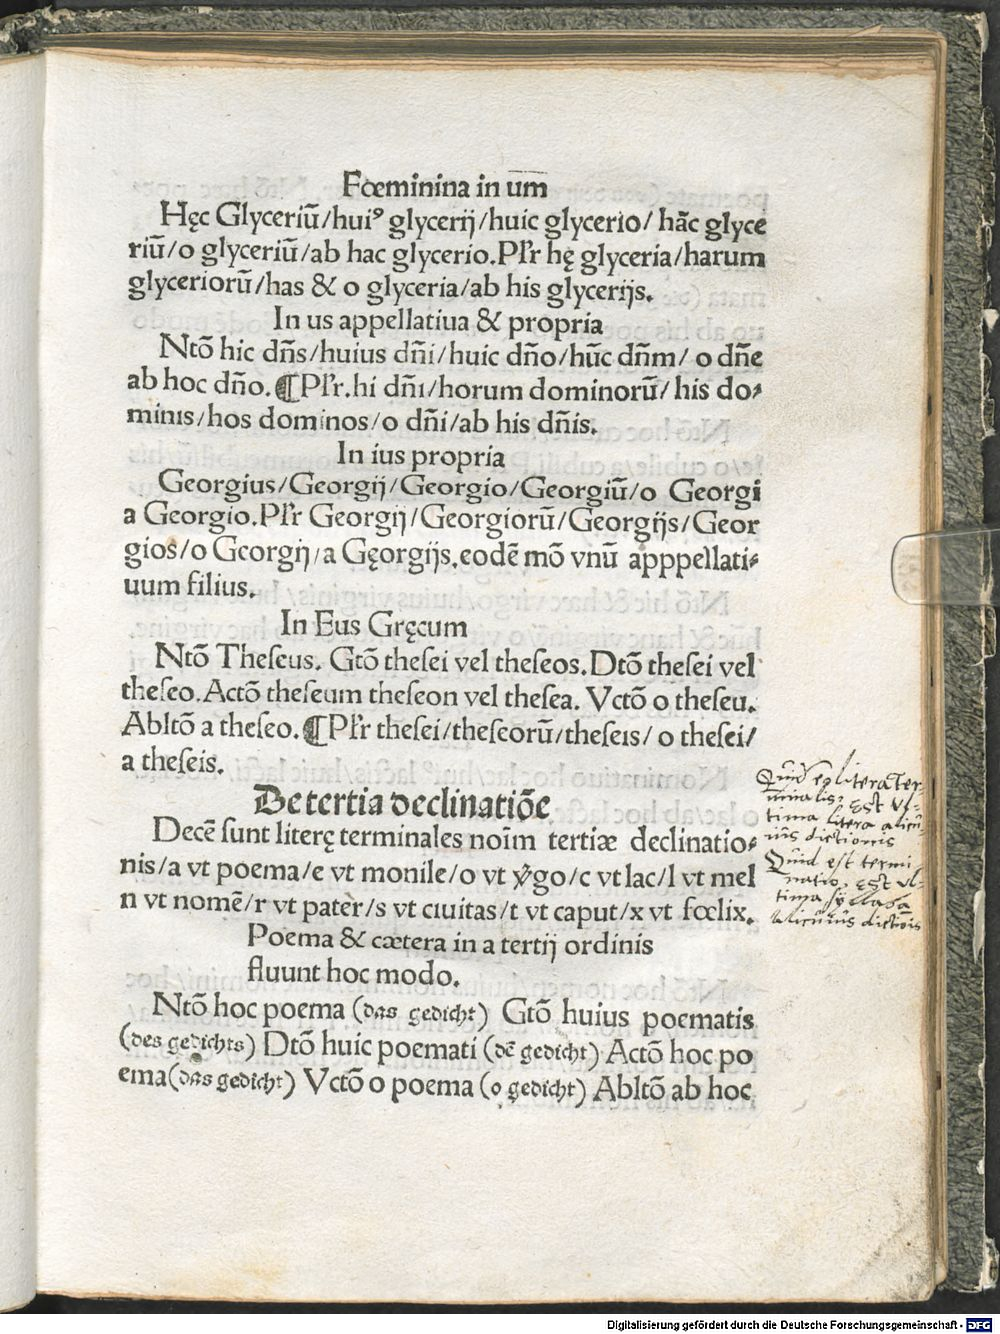 Fœminina in um
Hęc Glyceriū/huiꝰ glycerij/huic glycerio/ hāc glyce
riū/o glyceriū/ab hac glycerio.Pl̄r hę glyceria/harum
glyceriorū/has & o glyceria/ab his glycerijs.
In us appellatiua & propria
Ntō hic dn̄s/huius dn̄i/huic dn̄o/hūc dn̄m/ o dn̄e
ab hoc dn̄o.¶Pl̄r.hi dn̄i/horum dominorū/ his do⸗
minis/hos dominos/o dn̄i/ab his dn̄is.
In ius propria
Georgius/Georgij/Georgio/Georgiū/o Georgi
a Georgio.Pl̄r Georgij/Georgiorū/Georgijs/Geor
gios/o Georgij/a Gęorgijs.eodē mō vnū apppellati⸗
uum filius.
In Eus Gręcum
Ntō Theseus. Gtō thesei vel theseos.Dtō thesei vel
theseo.Actō theseum theseon vel thesea. Vctō o theseu.
Abltō a theseo.¶Pl̄r thesei/theseorū/theseis/ o thesei/
a theseis.
De tertia declinatiōe
Decē sunt literę terminales noīm tertiæ declinatio⸗
nis/a vt poema/e vt monile/o vt v̊go/c vt lac/l vt mel
n vt nomē/r vt pater/s vt ciuitas/t vt caput/x vt fœlix.
Poema & cætera in a tertij ordinis
fluunt hoc modo.
Ntō hoc poema (das gedicht) Gtō huius poematis
(des gedichts) Dtō huic poemati (dē gedicht) Actō hoc po
ema(das gedicht) Vctō o poema (o gedicht) Abltō ab hoc
Quid litera ter
minalis? Est vl-
tima litera alicu
iūs dictionis
Quid est termi
natio, Est vl-
tima syllaba
alicuiūs dictiōis
Digitalisierung gefördert durch die Deutsche Forschungsgemeinschaft - DFG